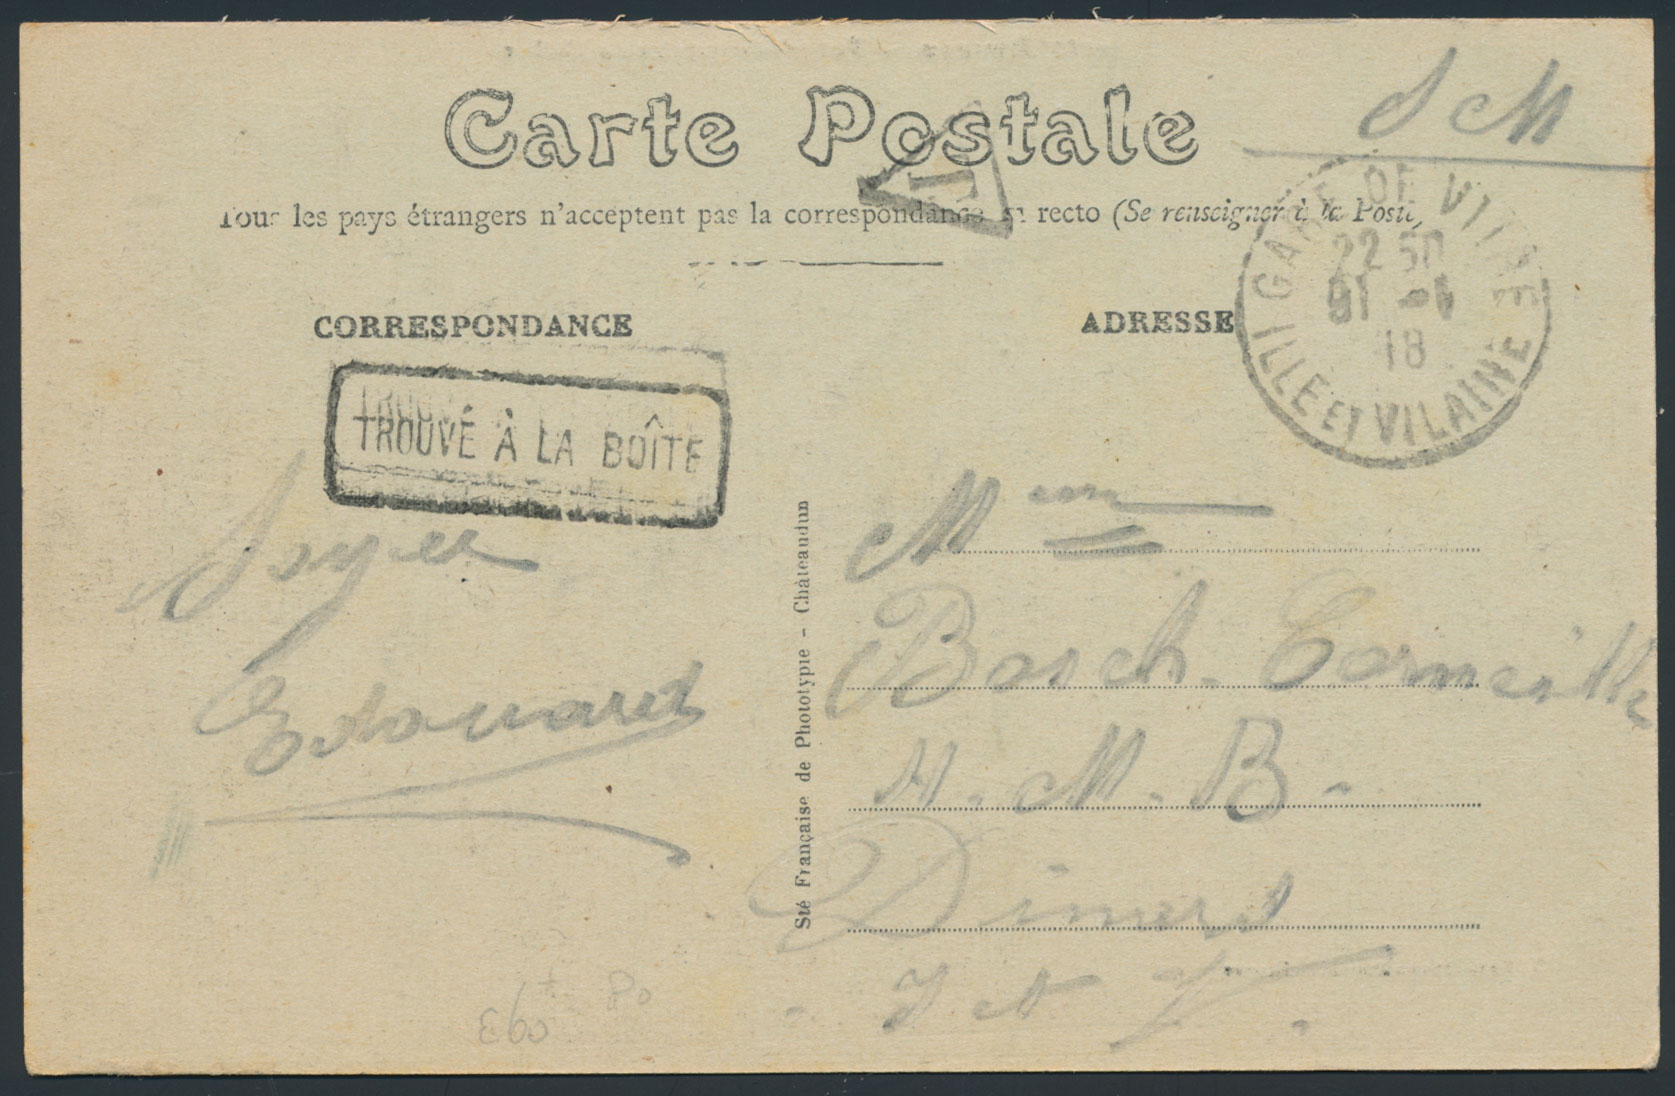 S M
Carte Postale
T
Tous les pays étrangers n'acceptent pas la correspondance au recto (Se renseigner à la Poste)
GARE DE VITRE
22 50
18
ILLE ET VILAINE
CORRESPONDANCE
ADRESSE
TROUVÉ À LA BOÎTE
Edouard
Sté Française de Phototypie - Châteaudun
Mme
Bosch. Corneille
H. M. B.
Dinard
I et V.